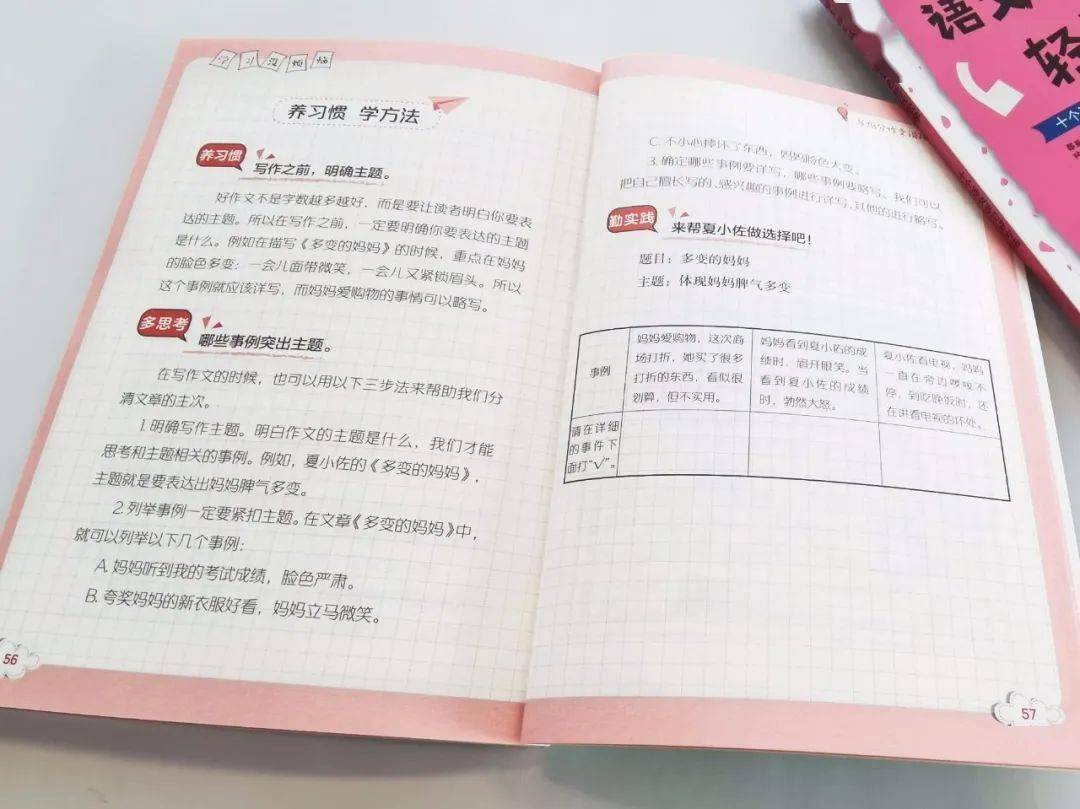 学习没烦恼
养习惯 学方法
养习惯
写作之前，明确主题。
好作文不是字数越多越好，而是要让读者明白你要表
达的主题。所以在写作之前，一定要明确你要表达的主题
是什么。例如在描写《多变的妈妈》的时候，重点在妈妈
的脸色多变：一会儿面带微笑，一会儿又紧锁眉头。所以
这个事例就应该详写，而妈妈爱购物的事情可以略写。
多思考
哪些事例突出主题。
在写作文的时候，也可以用以下三步法来帮助我们分
清文章的主次。
1.明确写作主题。明白作文的主题是什么，我们才能
思考和主题相关的事例。例如，夏小佐的《多变的妈妈》，
主题就是要表达出妈妈脾气多变。
2.列举事例一定要紧扣主题。在文章《多变的妈妈》中，
就可以列举以下几个事例：
A.妈妈听到我的考试成绩，脸色严肃。
B.夸奖妈妈的新衣服好看，妈妈立马微笑。
56
C.不小心摔坏了东西，妈妈脸色大变。
3.确定哪些事例要详写，哪些事例要略写。我们可以
把自己擅长写的、感兴趣的事例进行详写，其他的进行略写。
勤实践
来帮夏小佐做选择吧！
题目：多变的妈妈
主题：体现妈妈脾气多变
事例
妈妈爱购物，这次商
场打折，她买了很多
打折的东西，看似很
划算，但不实用。
妈妈看到夏小佑的成
绩时，眉开眼笑。当
看到夏小佐的成绩
时，勃然大怒。
夏小佐看电视，妈妈
一直在旁边啰唆不
停，到吃晚饭时，还
在讲看电视的坏处。
请在详细
的事件下
面打“√”。
57
语文
轻
十个